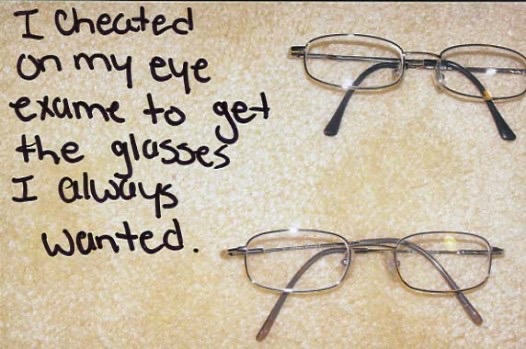 I Cheated
on my eye
exame to get
the glasses
I always
wanted.